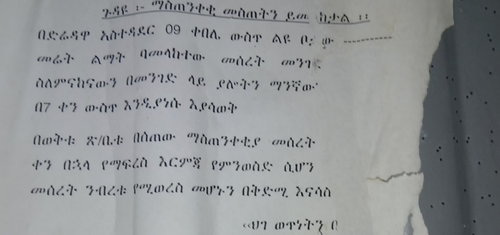 ጉዳዩ ፡- ማስጠንቀቂ መስጠትን ይመ ከታል ፡፡
በድሬዳዋ አስተዳደር 09 ቀበሌ ውስጥ ልዩ ቦ ው ------------
መሬት ልማት ባመላከተው መሰረት መንገድ
ስለምናከናውን በመንገድ ላይ ያሎትን ማንኛው
በ7 ቀን ውስጥ እንዲያነሱ እያሳወቅ
በወቅቱ ጽ/ቤቱ በሰጠው ማስጠንቀቂያ መሰረት
ቀን በኋላ የማፍረስ እርምጃ የምንወስድ ሲሆን
መሰረት ንብረቱ የሚወረስ መሆኑን በቅድሚ እናሳስ
‹‹ህገ ወጥነትን በ